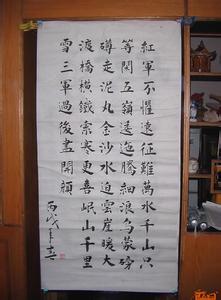 紅軍不懼遠征難萬水千山只
等閑五嶺逶迤騰細浪烏蒙磅
礴走泥丸金沙水迫雲崖暖大
渡橋橫鐵索寒更喜岷山千里
雪三軍過後盡開顏
丙戌年